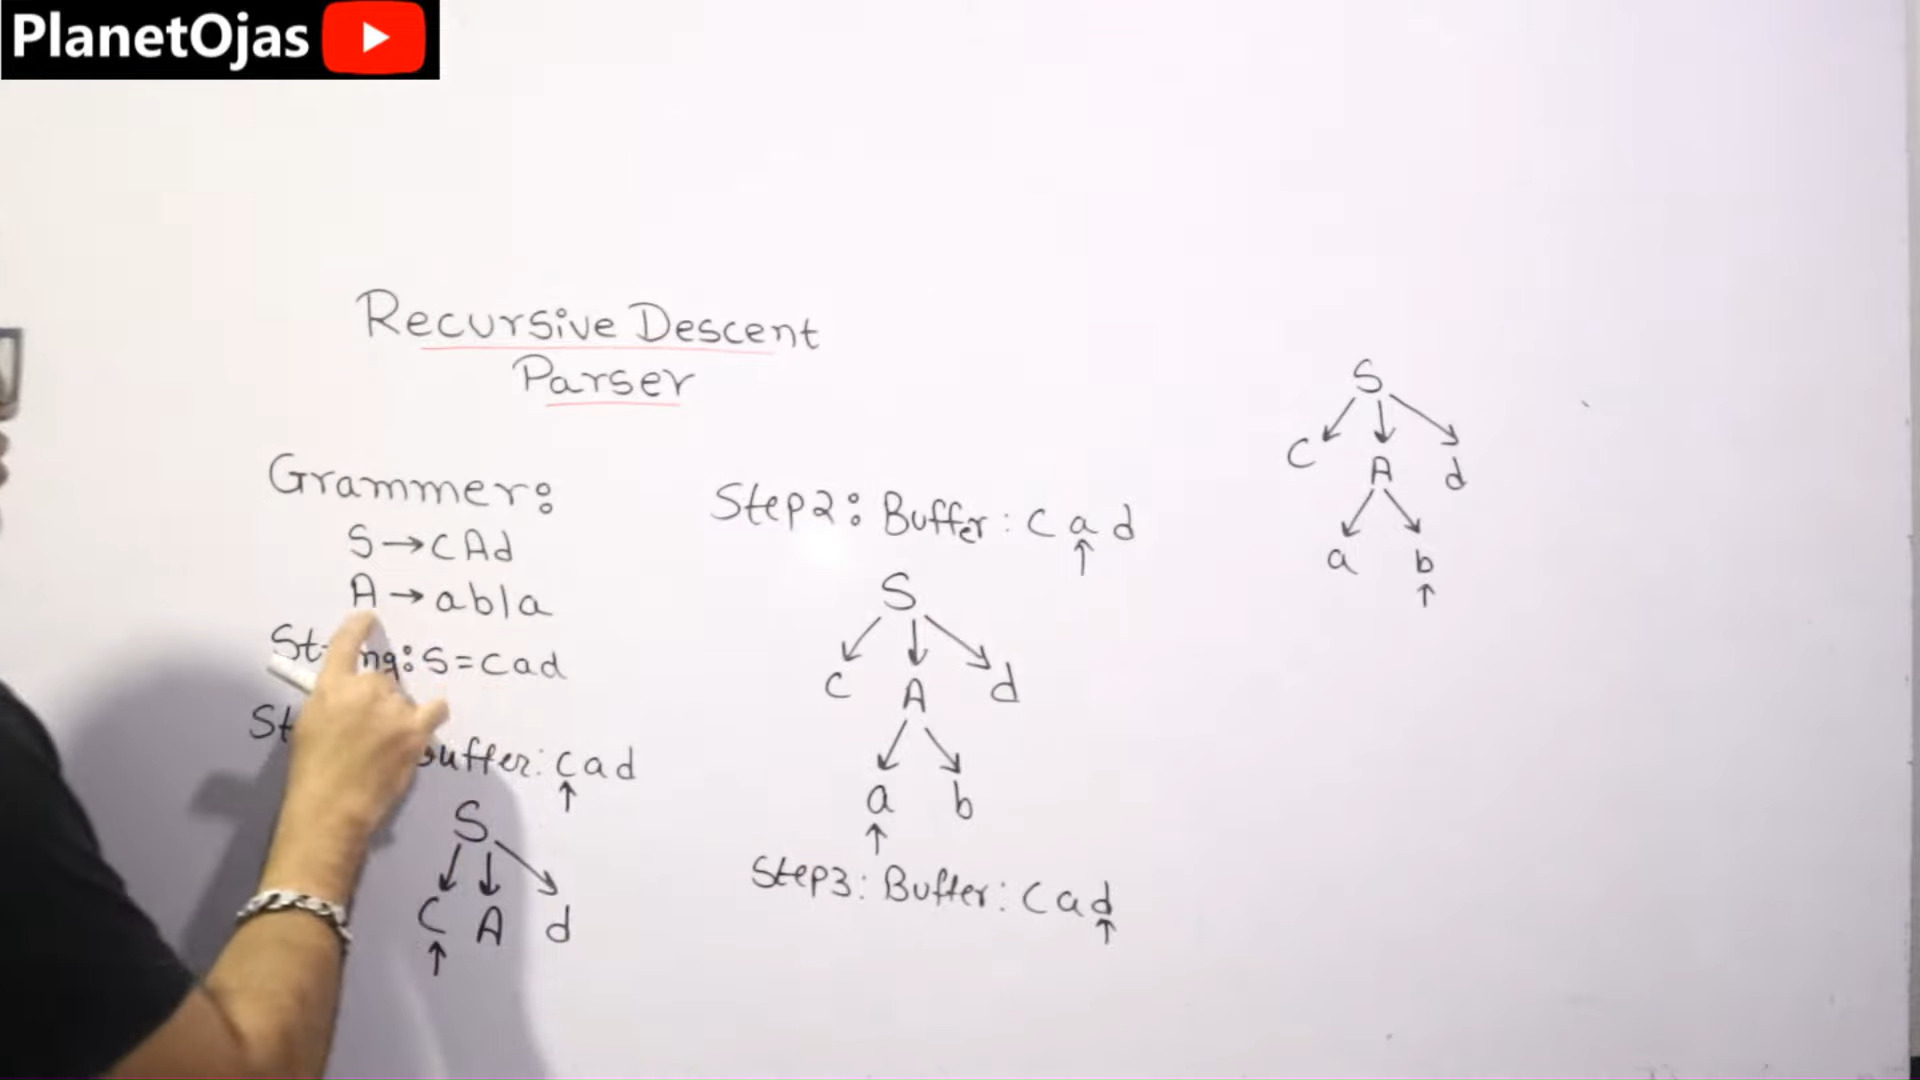 PlanetOjas
Recursive Descent
Parser
Grammer:
S→CAd
A→ab|a
String: S=Cad
Buffer: Cad
S
C A d
Step2: Buffer: C a d
S
C A d
a b
Step3: Buffer: C a d
S
C A d
a b